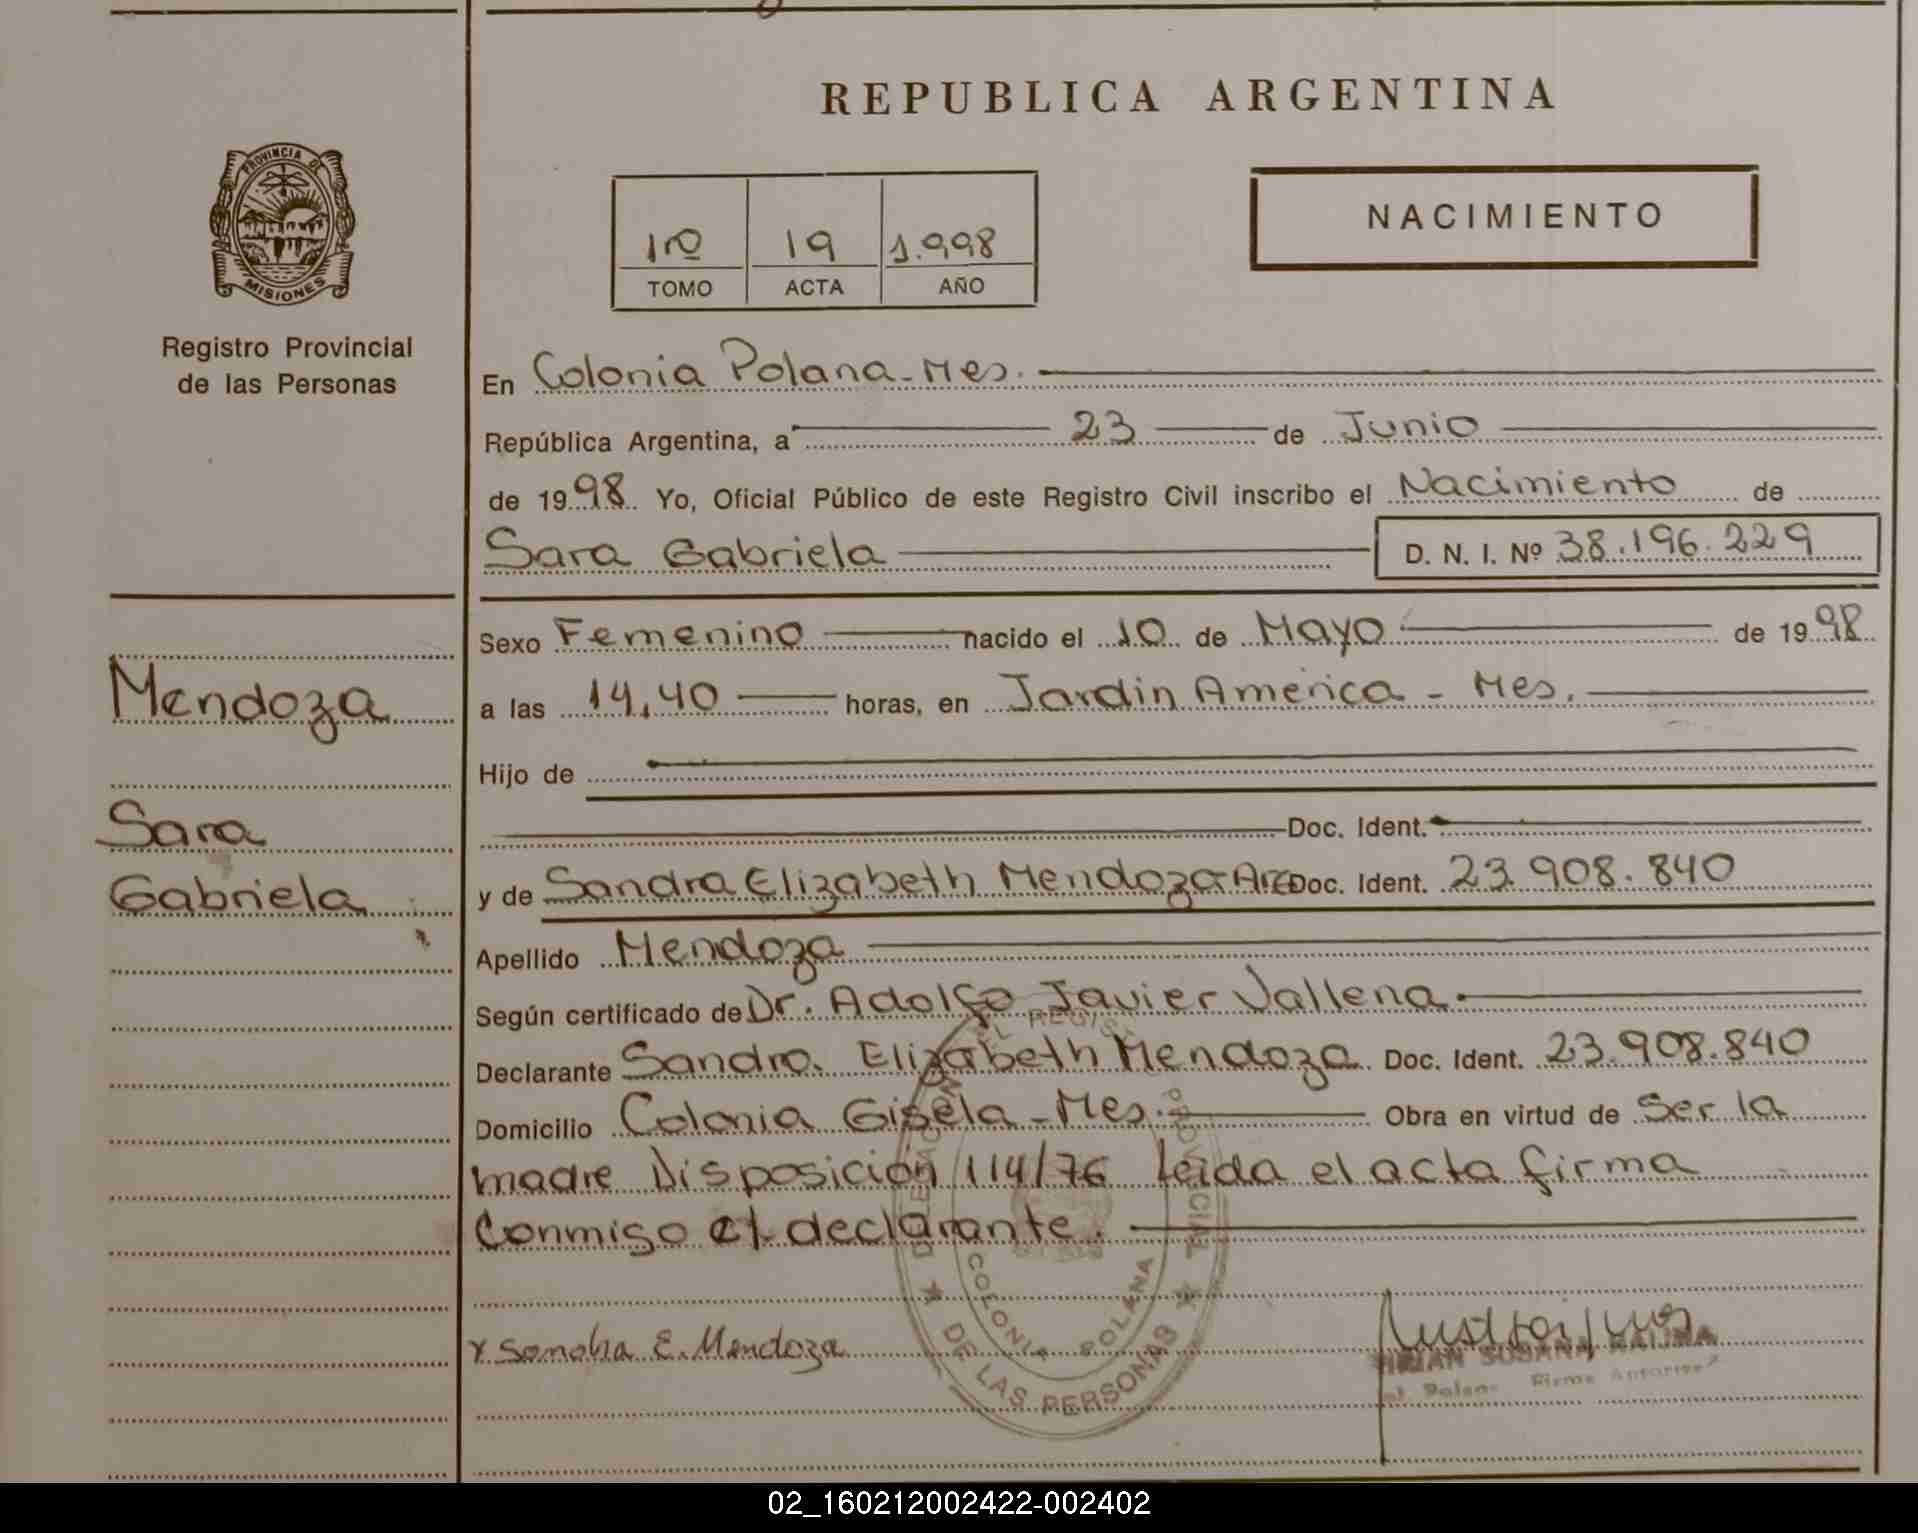 REPUBLICA ARGENTINA
PROVINCIA D
MISIONES
Registro Provincial
de las Personas
1rº 19 1.998
TOMO ACTA AÑO
NACIMIENTO
En Colonia Polana-Mes.
República Argentina, a 23 de Junio
de 1998 Yo, Oficial Público de este Registro Civil inscribo el Nacimiento de
Sara Gabriela D. N. I. Nº 38.196.229
Sexo Femenino nacido el 10 de Mayo de 1998
a las 14,40 horas, en Jardin America - Mes.
Hijo de
Doc. Ident.
y de Sandra Elizabeth Mendoza Arg Doc. Ident. 23.908.840
Apellido Mendoza
Según certificado de Dr. Adolfo Javier Vallena
Declarante Sandra Elizabeth Mendoza Doc. Ident. 23.908.840
Domicilio Colonia Gisela-Mes. Obra en virtud de Ser la
madre Disposición 114/76 Leida el acta firma
Conmigo el declarante.
Mendoza
Sara
Gabriela
x Sandra E. Mendoza
DELEGACION DEL REGIS PROVINCIAL
DE LAS PERSONAS
COLONIA POLANA
SUSANA
Firma
02_160212002422-002402